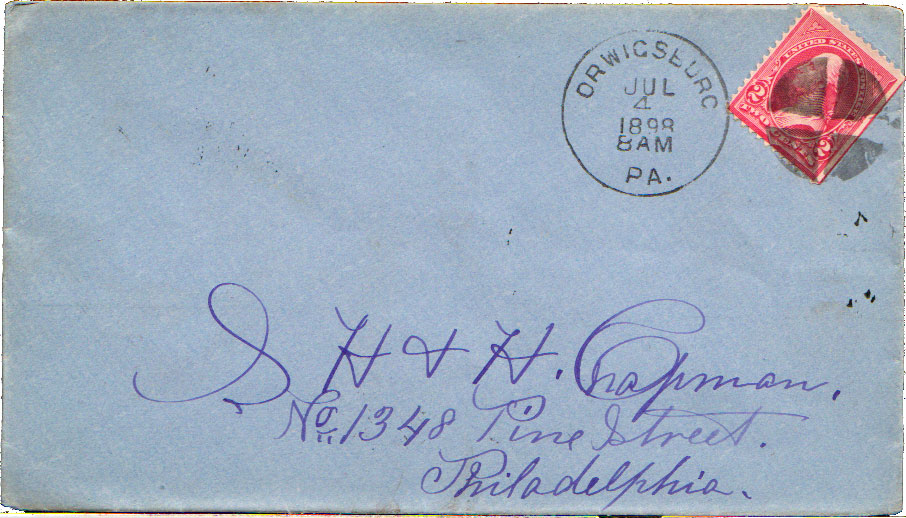 ORWIGSBURG
JUL
4
1898
8AM
PA.
UNITED STATES
2 2
S H & H. Chapman.
No. 1348 Pine Street.
Philadelphia.